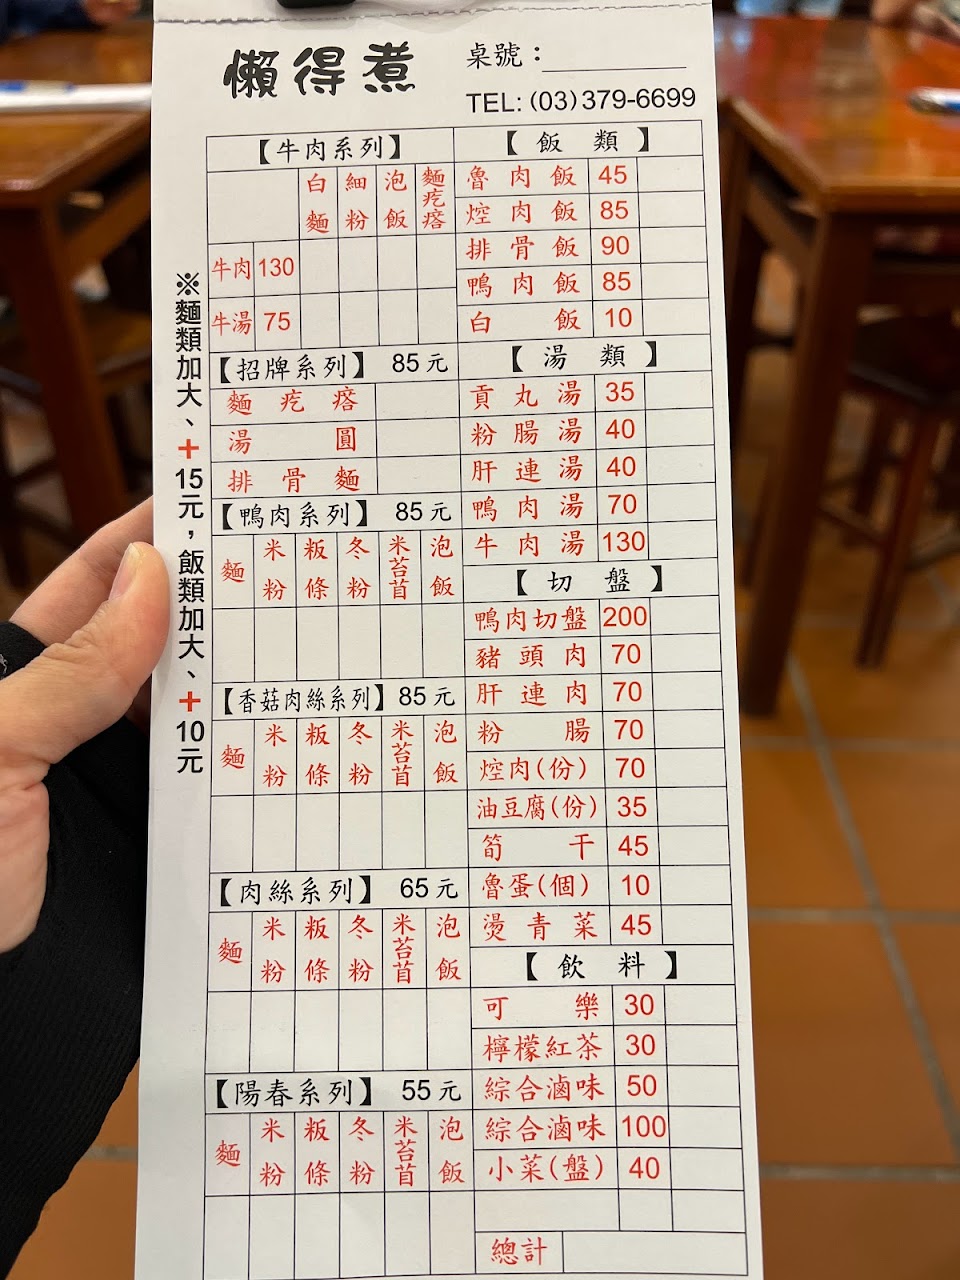 懶得煮
桌號：
TEL: (03)379-6699
※麵類加大、+15元，飯類加大、+10元
【牛肉系列】
白麵 細粉 泡飯 麵疙瘩
牛肉 130
牛湯 75
【招牌系列】 85元
麵疙瘩
湯圓
排骨麵
【鴨肉系列】 85元
麵 米粉 粄條 冬粉 米苔苜 泡飯
【香菇肉絲系列】 85元
麵 米粉 粄條 冬粉 米苔苜 泡飯
【肉絲系列】 65元
麵 米粉 粄條 冬粉 米苔苜 泡飯
【陽春系列】 55元
麵 米粉 粄條 冬粉 米苔苜 泡飯
【飯類】
魯肉飯 45
焢肉飯 85
排骨飯 90
鴨肉飯 85
白飯 10
【湯類】
貢丸湯 35
粉腸湯 40
肝連湯 40
鴨肉湯 70
牛肉湯 130
【切盤】
鴨肉切盤 200
豬頭肉 70
肝連肉 70
粉腸 70
焢肉(份) 70
油豆腐(份) 35
筍干 45
魯蛋(個) 10
燙青菜 45
【飲料】
可樂 30
檸檬紅茶 30
綜合滷味 50
綜合滷味 100
小菜(盤) 40
總計